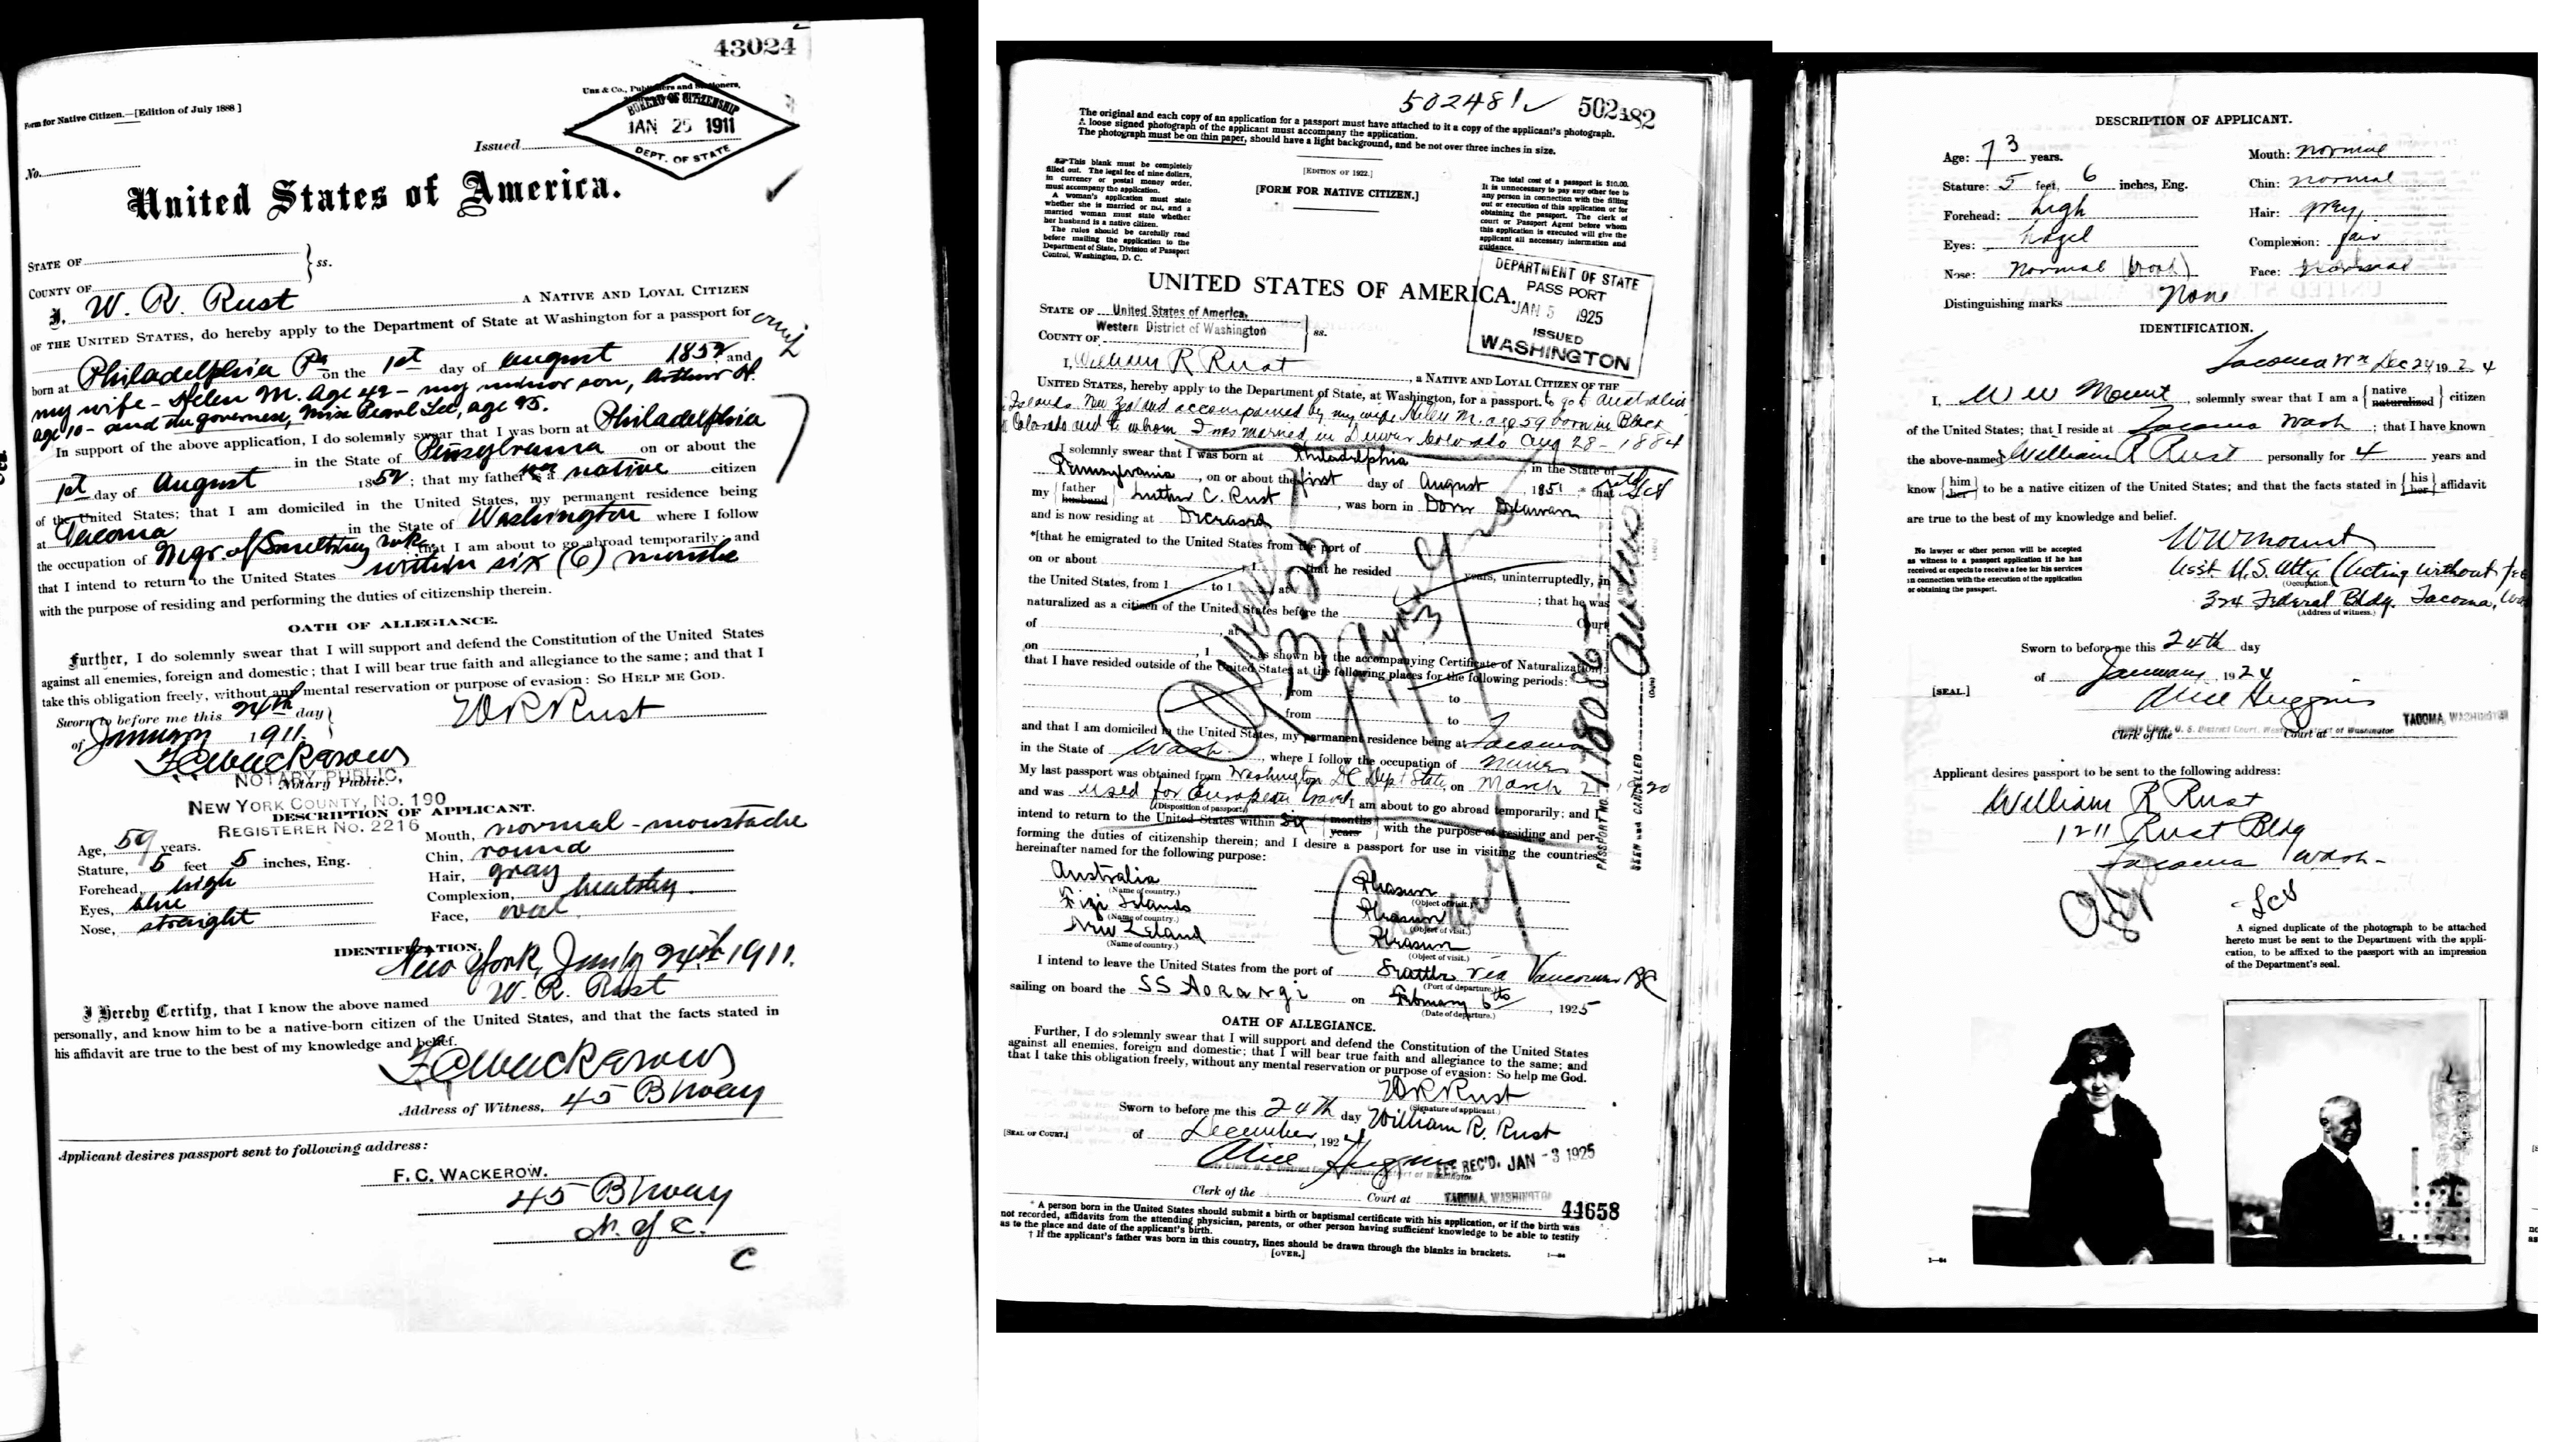 43024
Form for Native Citizen.—[Edition of July 1888]
Unz & Co., Publishers and Stationers,
BUREAU OF CITIZENSHIP
JAN 25 1911
DEPT. OF STATE
Issued
No.
United States of America.
STATE OF
ss.
COUNTY OF
I, W. R. Rust A NATIVE AND LOYAL CITIZEN
OF THE UNITED STATES, do hereby apply to the Department of State at Washington for a passport for
born at Philadelphia Pa on the 1st day of August 1852 and
my wife - Helen M. Age 42 - my minor son, Arthur H.
age 10 - and the governess, Miss Pearl Lee, age 25.
In support of the above application, I do solemnly swear that I was born at Philadelphia
in the State of Pennsylvania on or about the
1st day of August 1852; that my father was a native citizen
of the United States; that I am domiciled in the United States, my permanent residence being
at Tacoma in the State of Washington where I follow
the occupation of Mgr. of Smelting wks. that I am about to go abroad temporarily; and
that I intend to return to the United States within six (6) months
with the purpose of residing and performing the duties of citizenship therein.
OATH OF ALLEGIANCE.
Further, I do solemnly swear that I will support and defend the Constitution of the United States
against all enemies, foreign and domestic; that I will bear true faith and allegiance to the same; and that I
take this obligation freely, without any mental reservation or purpose of evasion: SO HELP ME GOD.
Sworn to before me this 24th day
W R Rust
of January 1911.
F C Wackerow
NOTARY PUBLIC,
Notary Public.
NEW YORK COUNTY, No. 190
DESCRIPTION OF APPLICANT.
REGISTERER NO. 2216
Age, 59 years.
Mouth, normal - moustache
Stature, 5 feet 5 inches, Eng.
Chin, round
Forehead, high
Hair, gray
Eyes, blue
Complexion, healthy
Nose, straight
Face, oval
IDENTIFICATION.
New York, Jan'y 24th 1911.
W. R. Rust
I Hereby Certify, that I know the above named
personally, and know him to be a native-born citizen of the United States, and that the facts stated in
his affidavit are true to the best of my knowledge and belief.
F C Wackerow
Address of Witness, 45 B'way
Applicant desires passport sent to following address:
F. C. WACKEROW.
45 B'way
N.Y.C.
C
502481 502482
The original and each copy of an application for a passport must have attached to it a copy of the applicant's photograph.
A loose signed photograph of the applicant must accompany the application.
The photograph must be on thin paper, should have a light background, and be not over three inches in size.
This blank must be completely
filled out. The legal fee of nine dollars,
in currency or postal money order,
must accompany the application.
A woman's application must state
whether she is married or not, and a
married woman must state whether
her husband is a native citizen.
The rules should be carefully read
before mailing the application to the
Department of State, Division of Passport
Control, Washington, D. C.
[EDITION OF 1922.]
[FORM FOR NATIVE CITIZEN.]
The total cost of a passport is $10.00.
It is unnecessary to pay any other fee to
any person in connection with the filling
out or execution of this application or for
obtaining the passport. The clerk of
court or Passport Agent before whom
this application is executed will give the
applicant all necessary information and
guidance.
DEPARTMENT OF STATE
PASSPORT
JAN 5 1925
ISSUED
WASHINGTON
UNITED STATES OF AMERICA.
STATE OF United States of America,
Western District of Washington
ss.
COUNTY OF
I, William R Rust, a NATIVE AND LOYAL CITIZEN OF THE
UNITED STATES, hereby apply to the Department of State, at Washington, for a passport. to go to Australia
Islands New Zealand accompanied by my wife Helen M. age 59 born in Black
Colorado and to whom I was married in Denver Colorado Aug 28 - 1884
I solemnly swear that I was born at Philadelphia, in the State of
Pennsylvania, on or about the first day of August, 1851, that
my father husband Luther C. Rust, was born in Dover Delaware
and is now residing at Deceased
*[that he emigrated to the United States from the port of
on or about , 1 ; that he resided years, uninterruptedly, in
the United States, from 1 to 1 , at ; that he was
naturalized as a citizen of the United States before the
of , at Court
on , 1 , as shown by the accompanying Certificate of Naturalization];
that I have resided outside of the United States at the following places for the following periods:
from to
from to
and that I am domiciled in the United States, my permanent residence being at Tacoma
in the State of Wash., where I follow the occupation of
My last passport was obtained from Washington DC Dept State, on March 1920
and was used for European travel I am about to go abroad temporarily; and I
(Disposition of passport.)
intend to return to the United States within six months years with the purpose of residing and per-
forming the duties of citizenship therein; and I desire a passport for use in visiting the countries
hereinafter named for the following purpose:
Australia Pleasure
(Name of country.) (Object of visit.)
Fizi Islands Pleasure
(Name of country.) (Object of visit.)
New Zeland Pleasure
(Name of country.) (Object of visit.)
I intend to leave the United States from the port of Seattle via Vancouver BC
(Port of departure.)
sailing on board the SS Aorangi on February 6th, 1925
(Date of departure.)
OATH OF ALLEGIANCE.
Further, I do solemnly swear that I will support and defend the Constitution of the United States
against all enemies, foreign and domestic; that I will bear true faith and allegiance to the same; and
that I take this obligation freely, without any mental reservation or purpose of evasion: So help me God.
W R Rust
(Signature of applicant.)
Sworn to before me this 24th day William R. Rust
[SEAL OF COURT.] of December, 1924
Alice Huggins
FEE REC'D. JAN -3 1925
Clerk of the Court at TACOMA, WASHINGTON
44658
* A person born in the United States should submit a birth or baptismal certificate with his application, or if the birth was
not recorded, affidavits from the attending physician, parents, or other person having sufficient knowledge to be able to testify
as to the place and date of the applicant's birth.
† If the applicant's father was born in this country, lines should be drawn through the blanks in brackets.
[OVER.]
PASSPORT NO.
SEEN and CANCELLED
DESCRIPTION OF APPLICANT.
Age: 73 years.
Mouth: normal
Stature: 5 feet, 6 inches, Eng.
Chin: normal
Forehead: high
Hair: grey
Eyes: hazel
Complexion: fair
Nose: normal
Face: normal
Distinguishing marks None
IDENTIFICATION.
Tacoma Wn Dec 24 1924
I, W W Mount, solemnly swear that I am a native naturalized citizen
of the United States; that I reside at Tacoma Wash; that I have known
the above-named William R Rust personally for 4 years and
know him her to be a native citizen of the United States; and that the facts stated in his her affidavit
are true to the best of my knowledge and belief.
W W Mount
No lawyer or other person will be accepted
as witness to a passport application if he has
received or expects to receive a fee for his services
in connection with the execution of the application
or obtaining the passport.
Asst. U.S. Atty (Acting without fee
(Occupation.)
324 Federal Bldg. Tacoma,
(Address of witness.)
Sworn to before me this 24th day
of January, 1924
[SEAL.]
Alice Huggins
TACOMA, WASHINGTON
Clerk of the Court at
Applicant desires passport to be sent to the following address:
William R Rust
1211 Rust Bldg
Tacoma Wash-
A signed duplicate of the photograph to be attached
hereto must be sent to the Department with the appli-
cation, to be affixed to the passport with an impression
of the Department's seal.